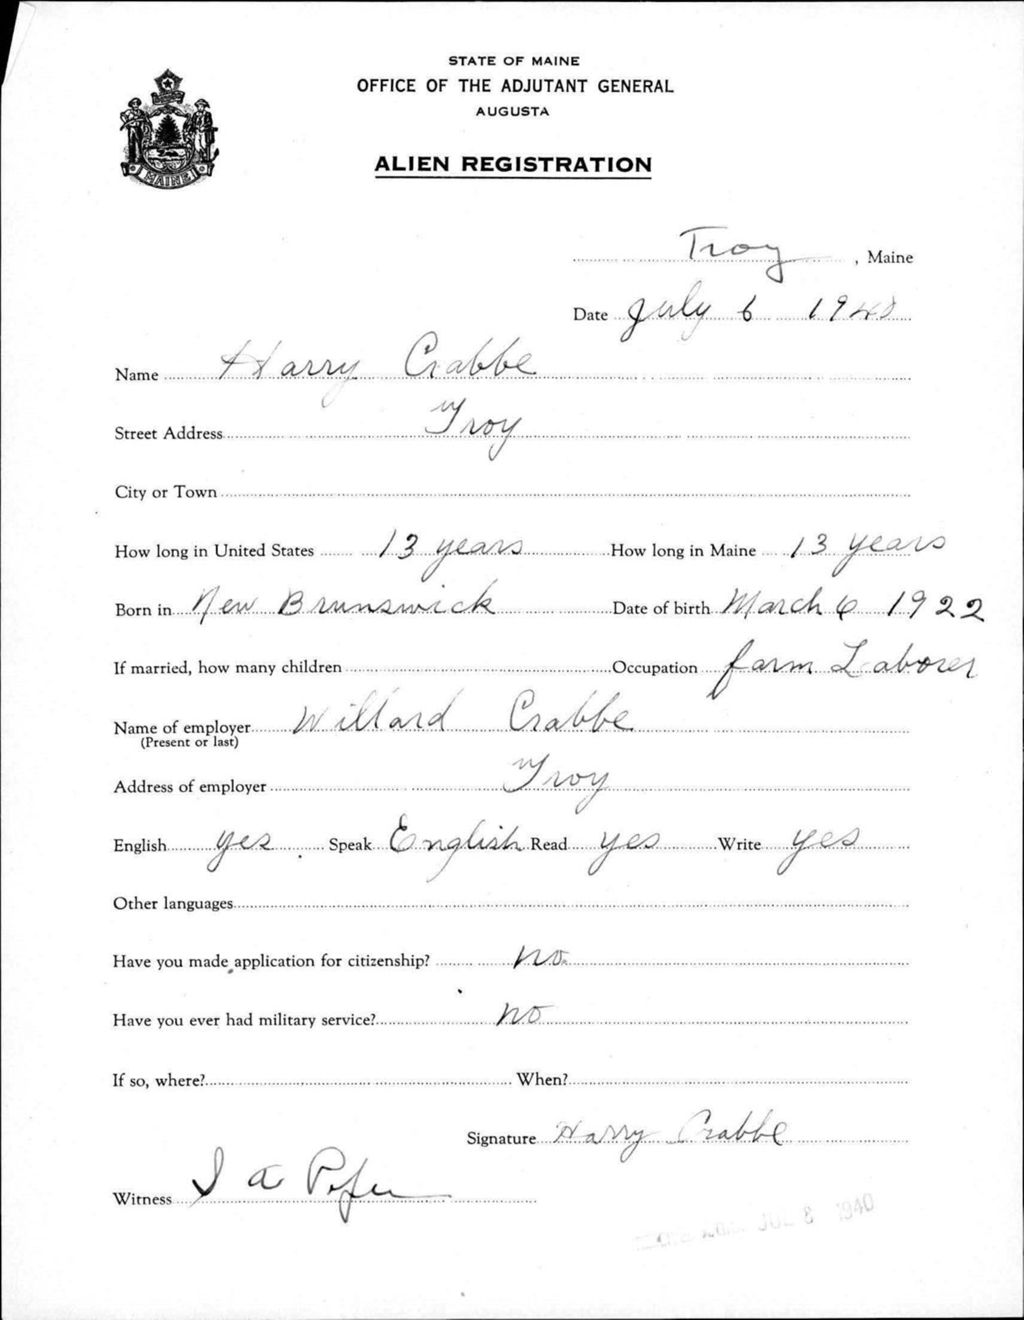 STATE OF MAINE
OFFICE OF THE ADJUTANT GENERAL
AUGUSTA
ALIEN REGISTRATION
MAINE
Troy, Maine
Date July 6 1940
Name Harry Crabbe
Street Address Troy
City or Town
How long in United States 13 years How long in Maine 13 years
Born in New Brunswick Date of birth March 6 1922
If married, how many children Occupation farm Laborer
Name of employer Willard Crabbe
(Present or last)
Address of employer Troy
English yes Speak English Read yes Write yes
Other languages
Have you made application for citizenship? no
Have you ever had military service? no
If so, where? When?
Signature Harry Crabbe
Witness
JUL 8 1940